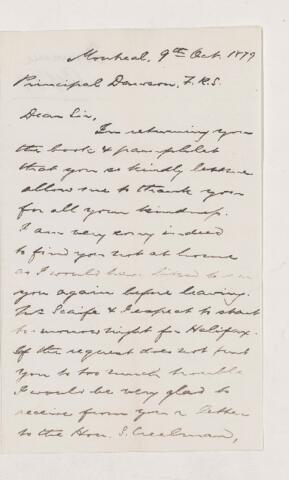 Montreal, 9th Oct. 1879
Principal Dawson, F.R.S.
Dear Sir,
In returning you
the book & pamphlet
that you so kindly
allow me to thank you
for all your kindness.
I am very sorry indeed
to find you not at home
as I would have liked to see
you again before leaving.
Mr Scaife & I expect to start
to-morrow night for Halifax.
If the request does not put
you to too much trouble
I would be very glad to
receive from you a letter
to the Hon. S. Creelman,